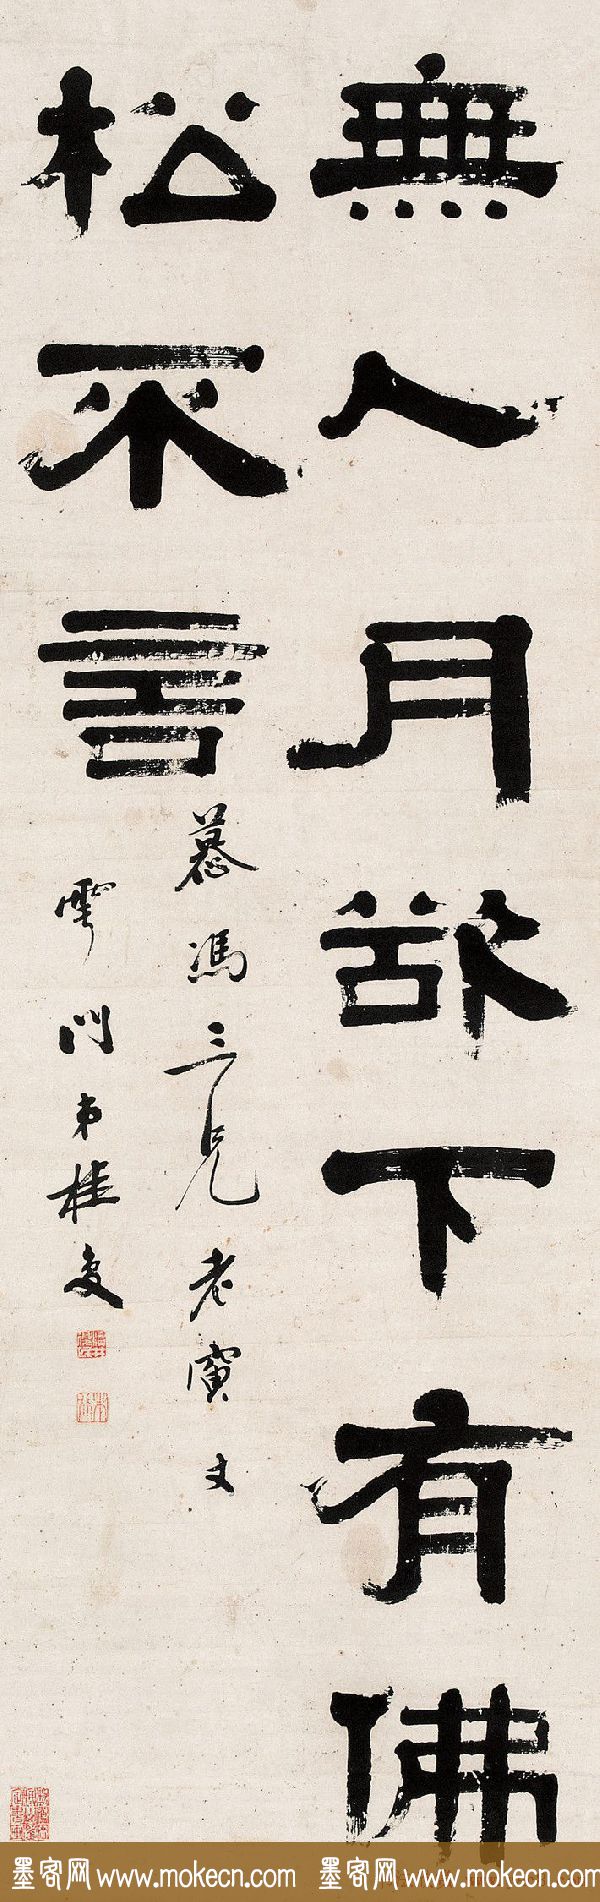 無人月欲下有佛
松不言
馮三兄老
門弟桂复
墨客网www.mokecn.com 墨客网www.mokecn.com